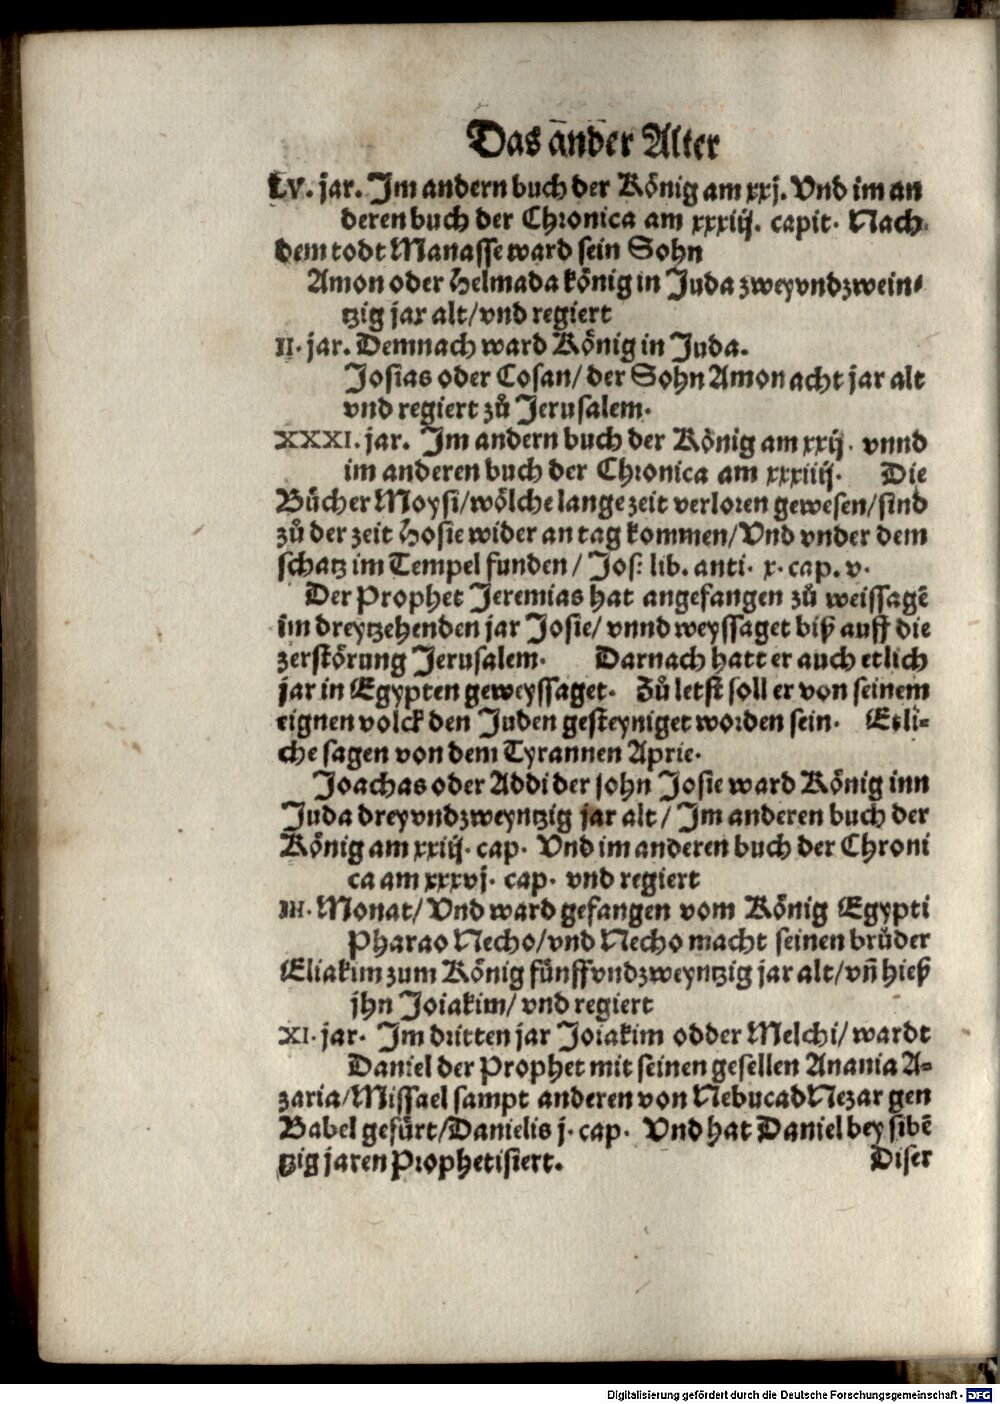 Das ander Alter
LV. jar. Jm andern buch der König am xxj. Vnd im an
deren buch der Chronica am xxxiij. capit. Nach
dem todt Manasse ward sein Sohn
Amon oder Helmada könig in Juda zweyvndzwein-
tzig jar alt/vnd regiert
II. jar. Demnach ward König in Juda.
Josias oder Cosan/ der Sohn Amon acht jar alt
vnd regiert zů Jerusalem.
XXXI. jar. Jm andern buch der König am xxij. vnnd
im anderen buch der Chronica am xxxiiij. Die
Bücher Moysi/wölche lange zeit verloren gewesen/sind
zů der zeit Hosie wider an tag kommen/Vnd vnder dem
schatz im Tempel funden/ Jos: lib. anti. x. cap. v.
Der Prophet Jeremias hat angefangen zů weissagē
im dreytzehenden jar Josie/ vnnd weyssaget biß auff die
zerstörung Jerusalem. Darnach hatt er auch etlich
jar in Egypten geweyssaget. Zů letst soll er von seinem
eignen volck den Juden gesteyniget worden sein. Etli-
che sagen von dem Tyrannen Aprie.
Joachas oder Addi der sohn Josie ward König inn
Juda dreyvndzweyntzig jar alt/ Jm anderen buch der
König am xxiij. cap. Vnd im anderen buch der Chroni
ca am xxxvj. cap. vnd regiert
III. Monat/ Vnd ward gefangen vom König Egypti
Pharao Necho/vnd Necho macht seinen brůder
Eliakim zum König fünffvndzweyntzig jar alt/vn̄ hieß
jhn Joiakim/ vnd regiert
XI. jar. Jm dritten jar Joiakim odder Melchi/ wardt
Daniel der Prophet mit seinen gesellen Anania A-
zaria/Missael sampt anderen von NebucadNezar gen
Babel gefürt/Danielis j. cap. Vnd hat Daniel bey sibē
tzig jaren Prophetisiert. Diser
Digitalisierung gefördert durch die Deutsche Forschungsgemeinschaft - DFG